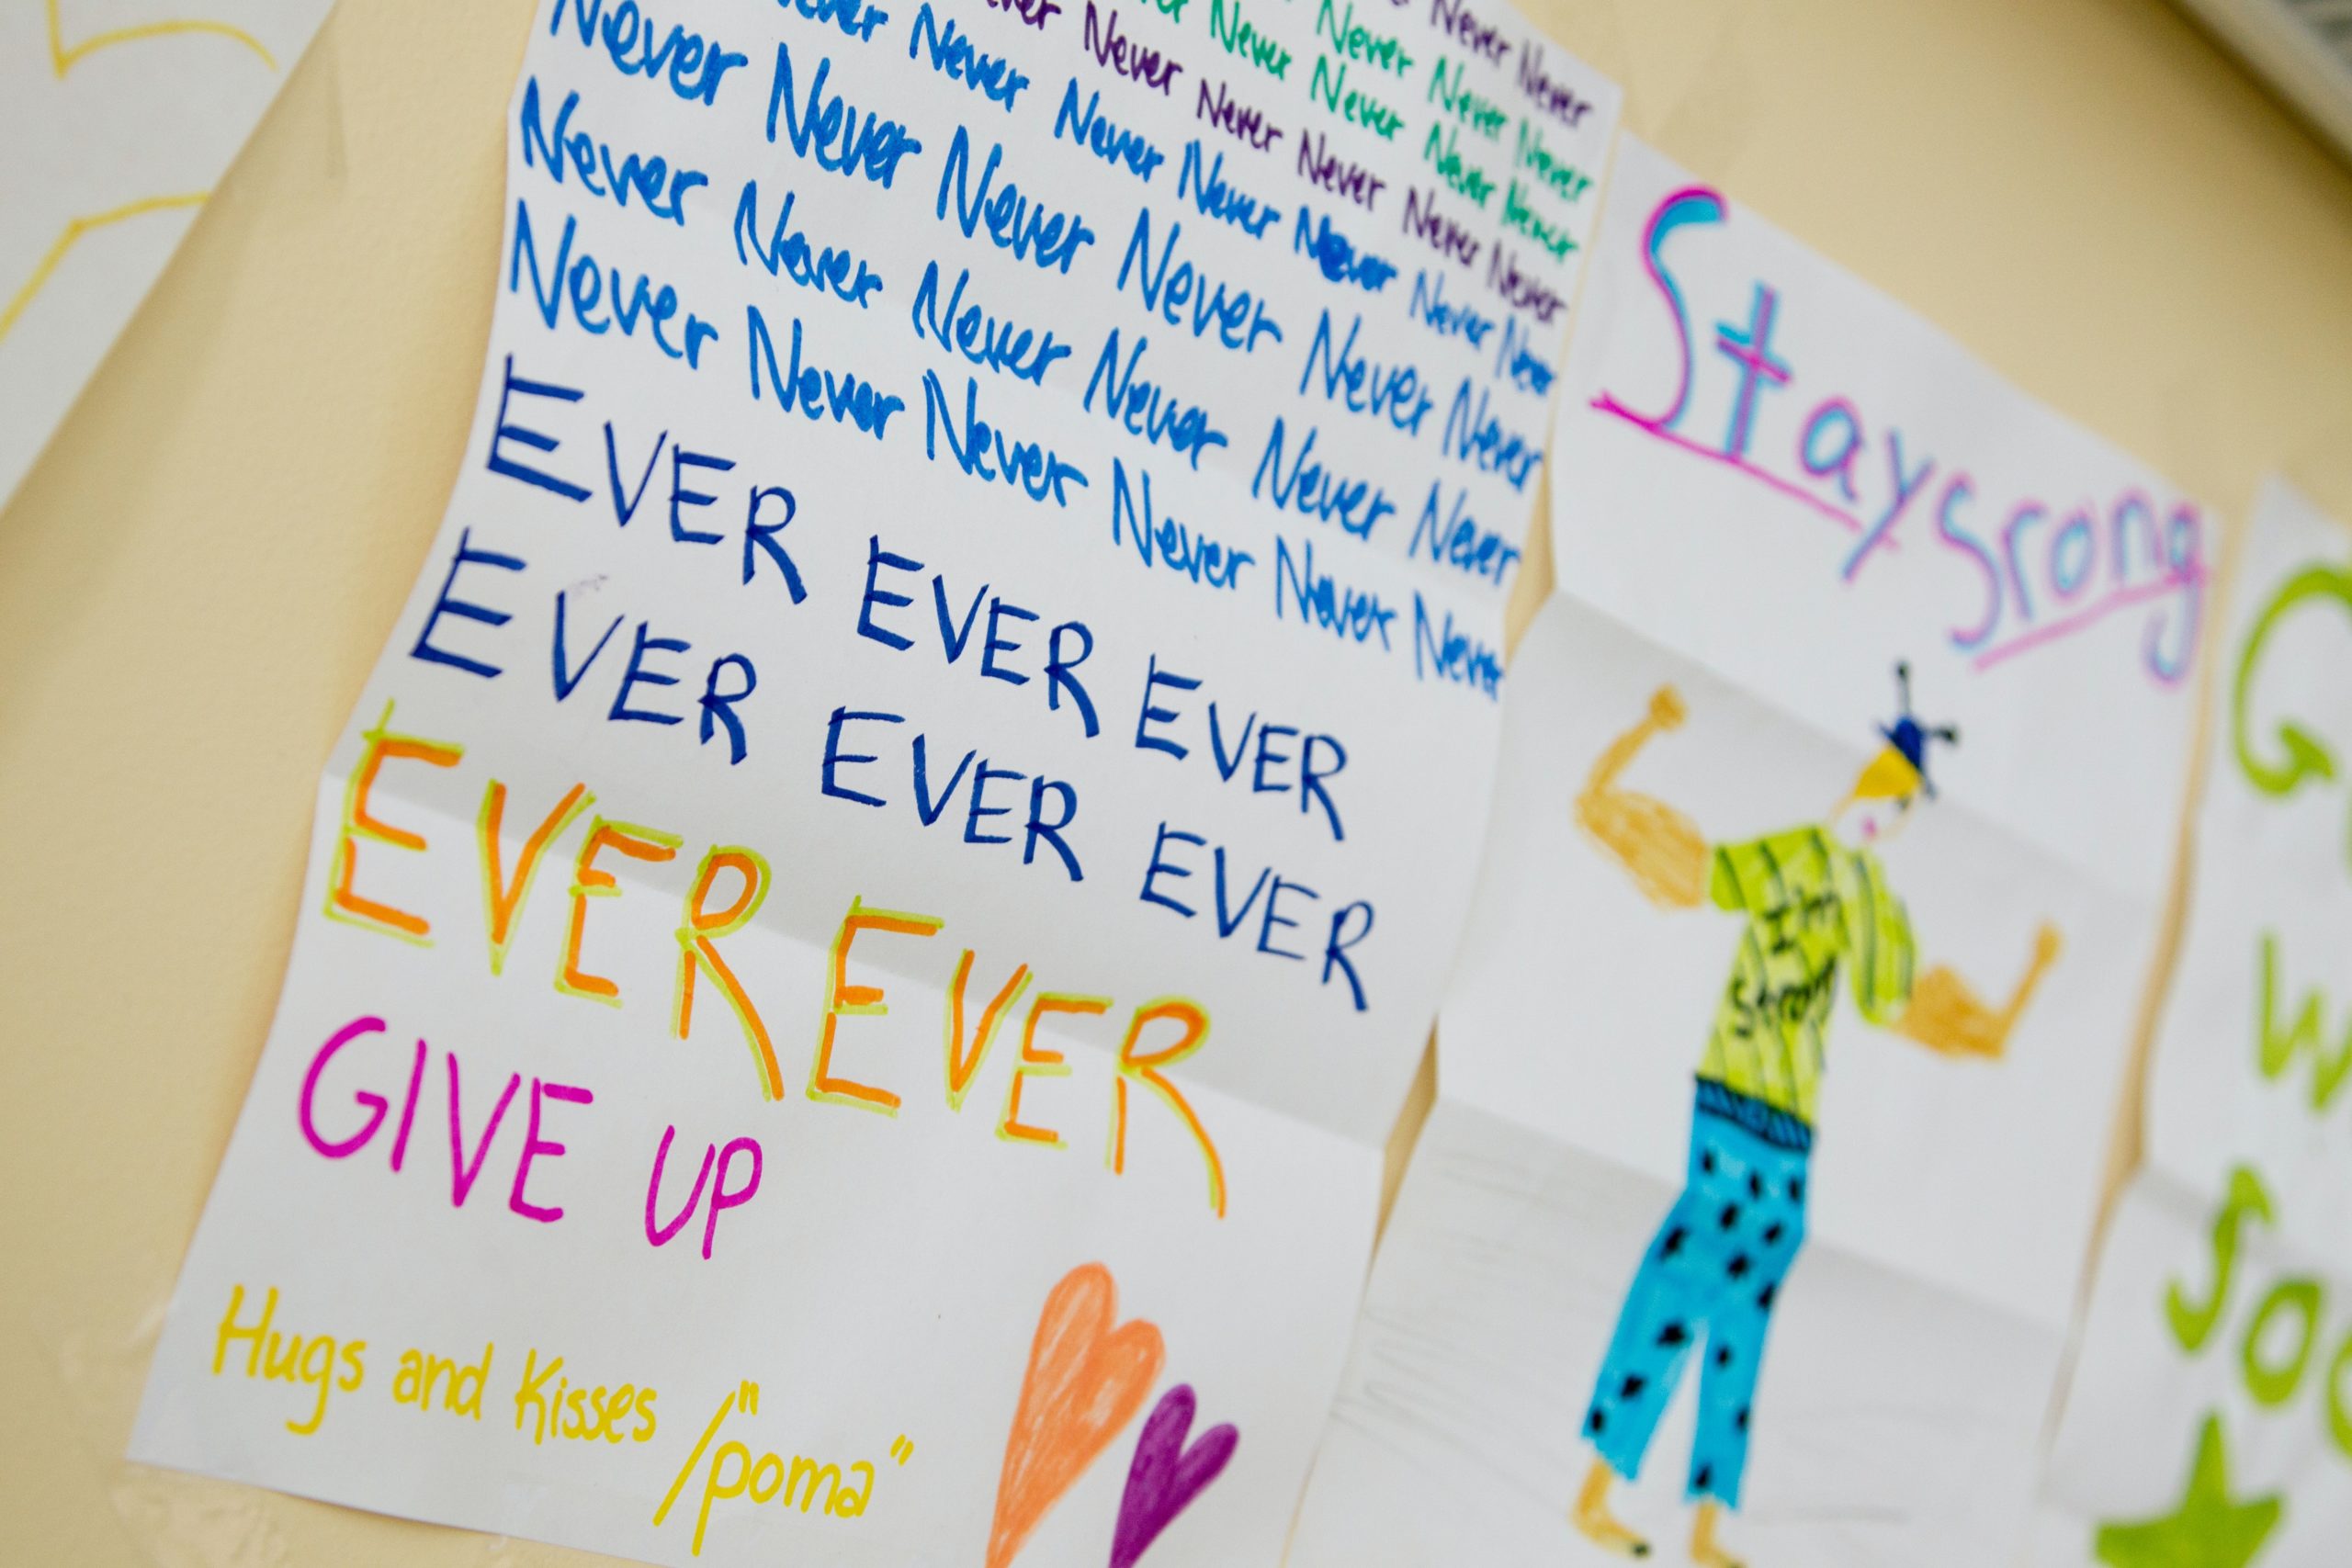 Never Never
Never Never Never
Never Never Never Never
Never Never Never Never Never
Never Never Never Never Never Never
Never Never Never Never Never Never
Never Never Never Never Never Never
Never Never Never Never Never Never
EVER EVER EVER
EVER EVER EVER
EVER EVER
GIVE UP
Hugs and Kisses /"poma"
Stay srong
I'm